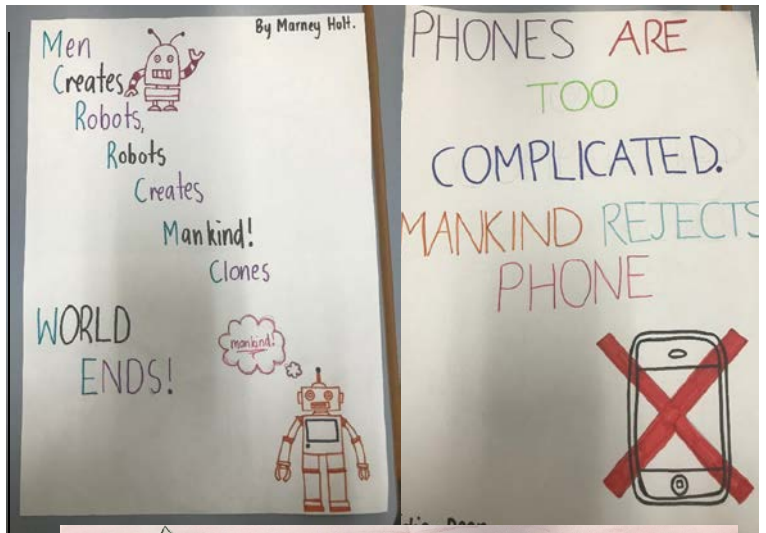 By Marney Holt.
Men
Creates
Robots,
Robots
Creates
Mankind!
Clones
WORLD
ENDS!
mankind!
PHONES ARE
TOO
COMPLICATED.
MANKIND REJECTS
PHONE